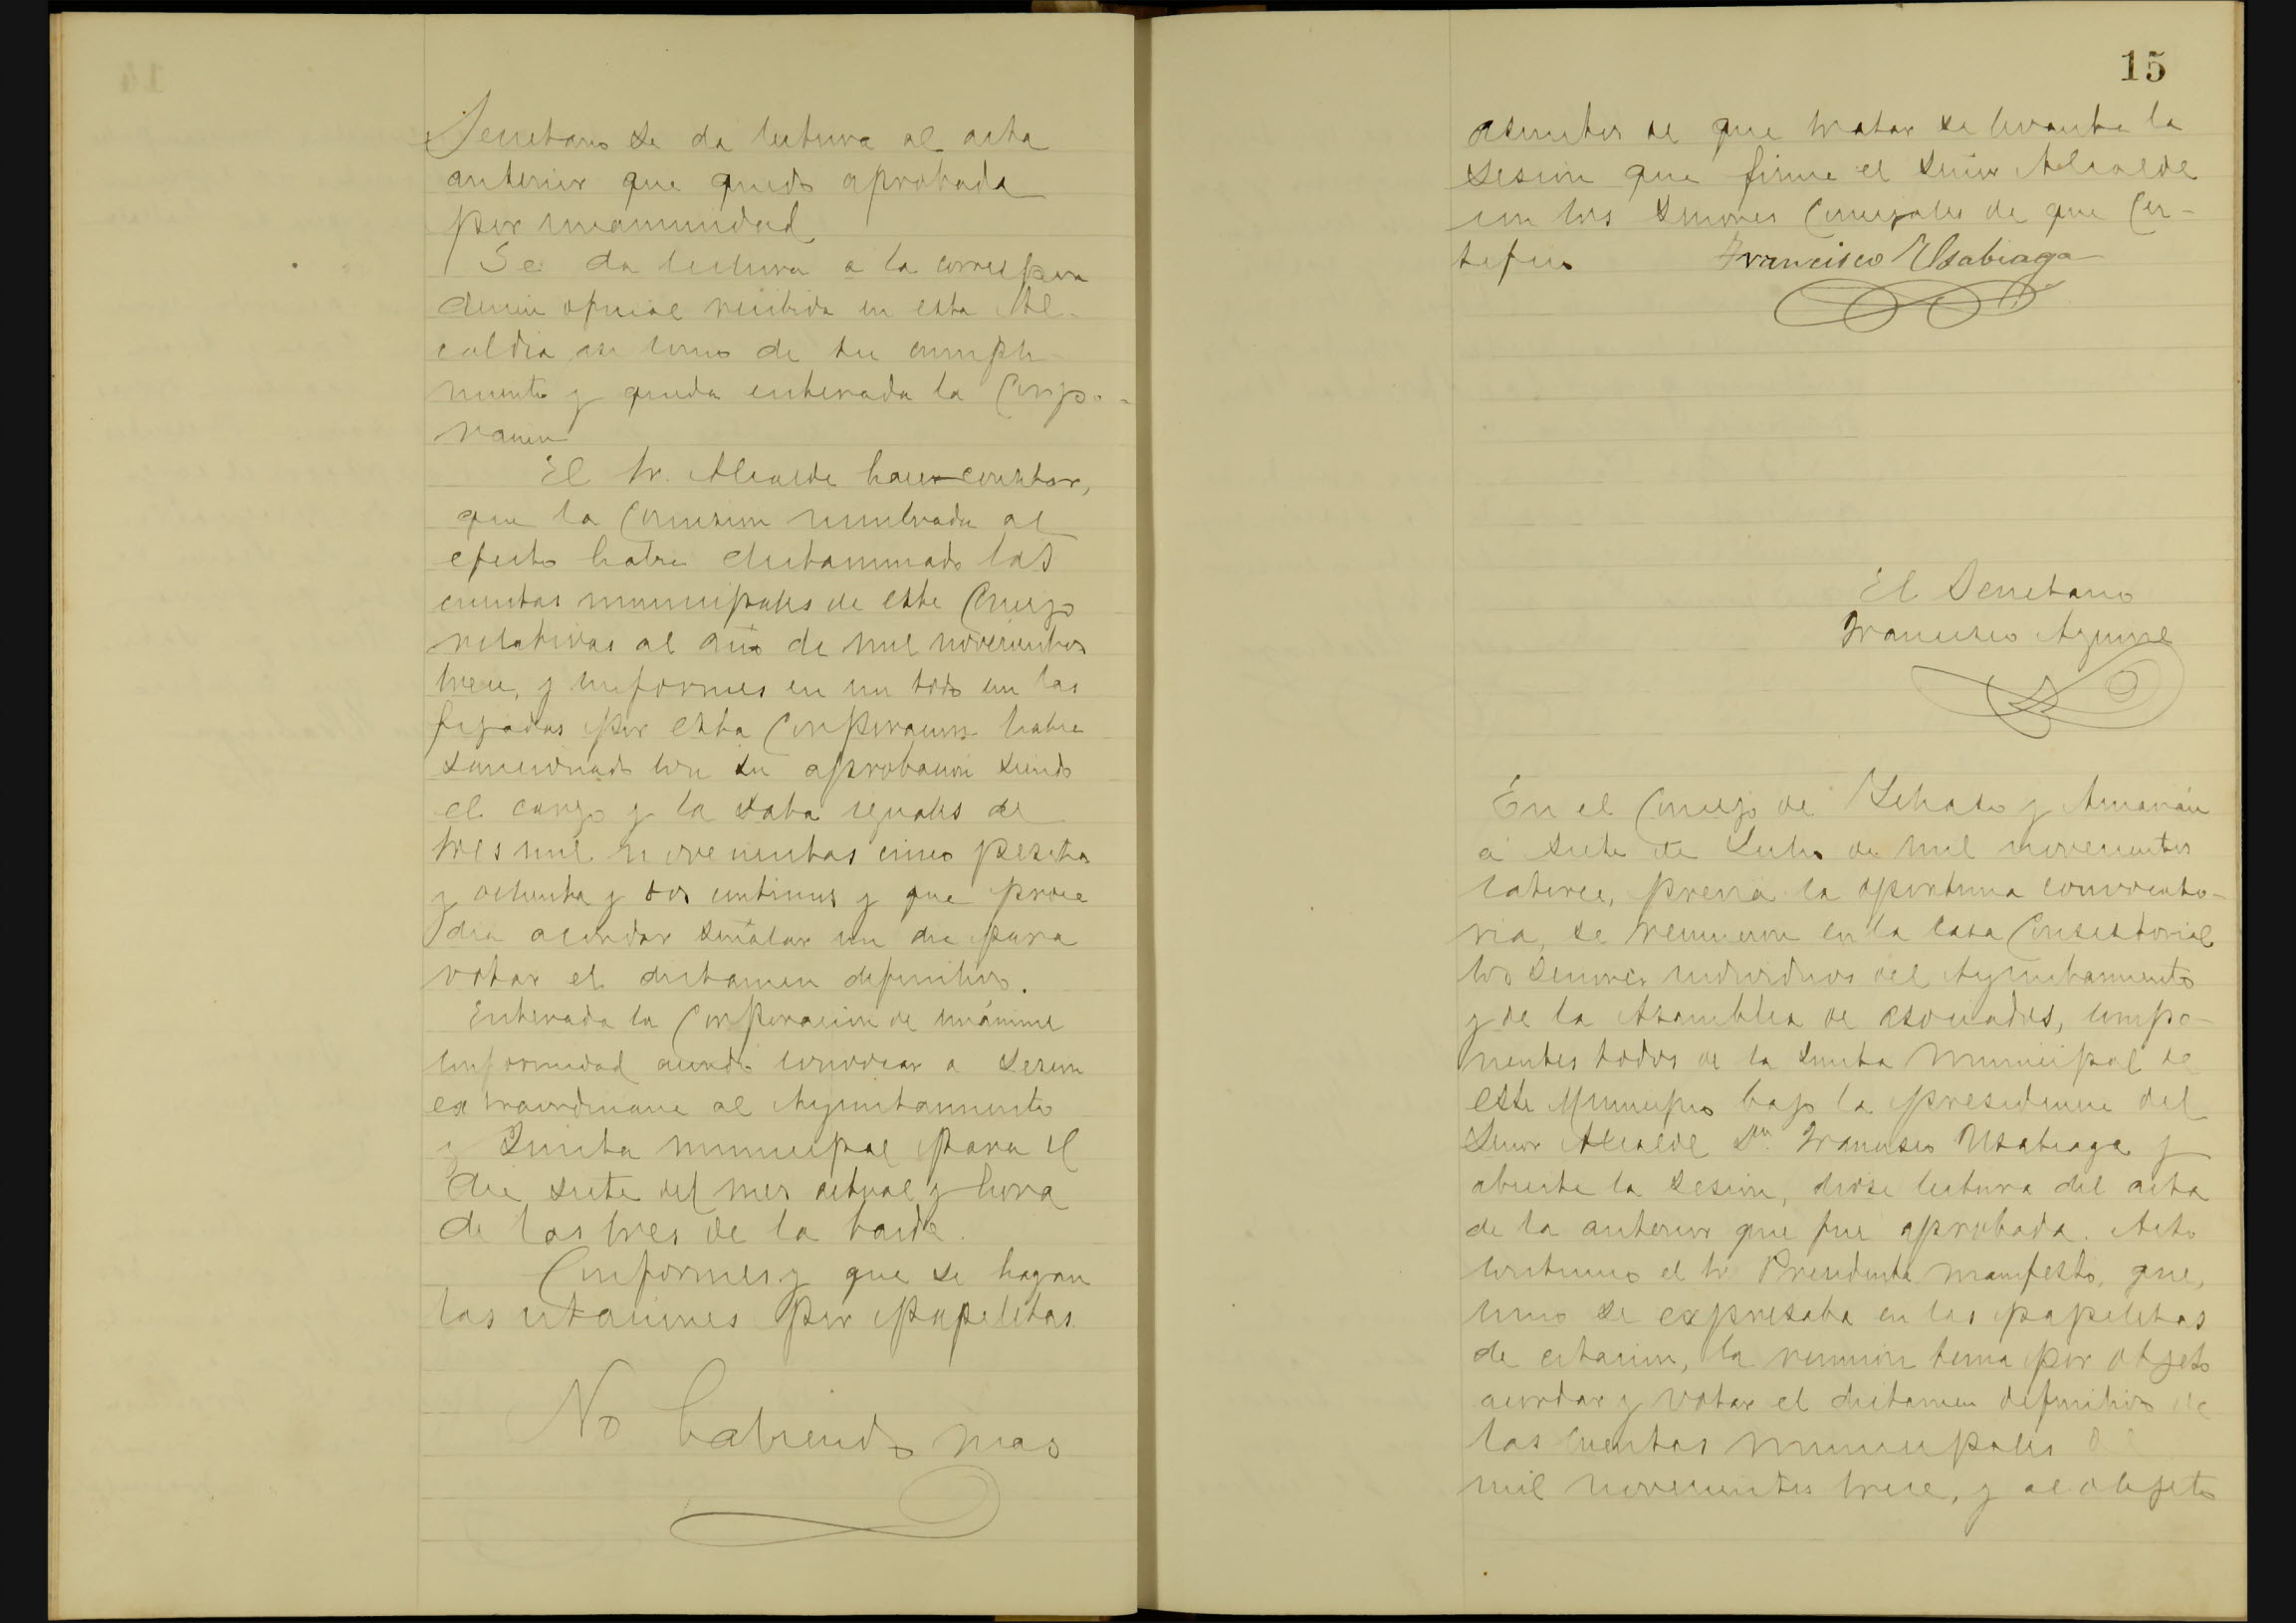 Secretario se da lectura al acta
anterior que quedo aprobada
por unanimidad
Se da lectura a la correspon
dencia oficial recibida en esta Al-
caldia asi como de su cumpli
miento y queda enterada la Corpo-
racion
El Sr. Alcalde hace constar,
que la Comision nombrada al
efecto habia dictaminado las
cuentas municipales de este Concejo
relativas al año de mil novecientos
trece, y conformes en un todo con las
fijadas por esta Corporacion habia
sancionado con su aprobacion siendo
el cargo y la data iguales de
tres mil novecientas cinco pesetas
y ochenta y dos centimos y que proce
dia acordar señalar un dia para
votar el dictamen definitivo.
Enterada la Corporacion de unánime
conformidad acordo convocar a sesion
extraordinaria al Ayuntamiento
y Junta municipal para el
dia siete del mes actual y hora
de las tres de la tarde.
Conformes y que se hagan
las citaciones por papeletas.
No habiendo mas
15
asuntos de que tratar se levanta la
sesion que firma el Señor Alcalde
con los Señores Concejales de que Cer-
tifico Francisco Usabiaga
El Secretario
Francisco Aguirre
En el Concejo de y
a siete de Julio de mil novecientos
catorce, previa la oportuna convocato-
ria, se reunieron en la casa Consistorial
los Señores individuos del Ayuntamiento
y de la Asamblea de asociados, compo-
nentes todos de la Junta Municipal de
este Municipio bajo la presidencia del
Señor Alcalde Dn. Francisco Usabiaga y
abierta la sesion, diose lectura del acta
de la anterior que fue aprobada. Acto
continuo el Sr. Presidente manifesto, que,
como se expresaba en las papeletas
de citacion, la reunion tenia por objeto
acordar y votar el dictamen definitivo de
las cuentas municipales
mil novecientos trece, y al objeto